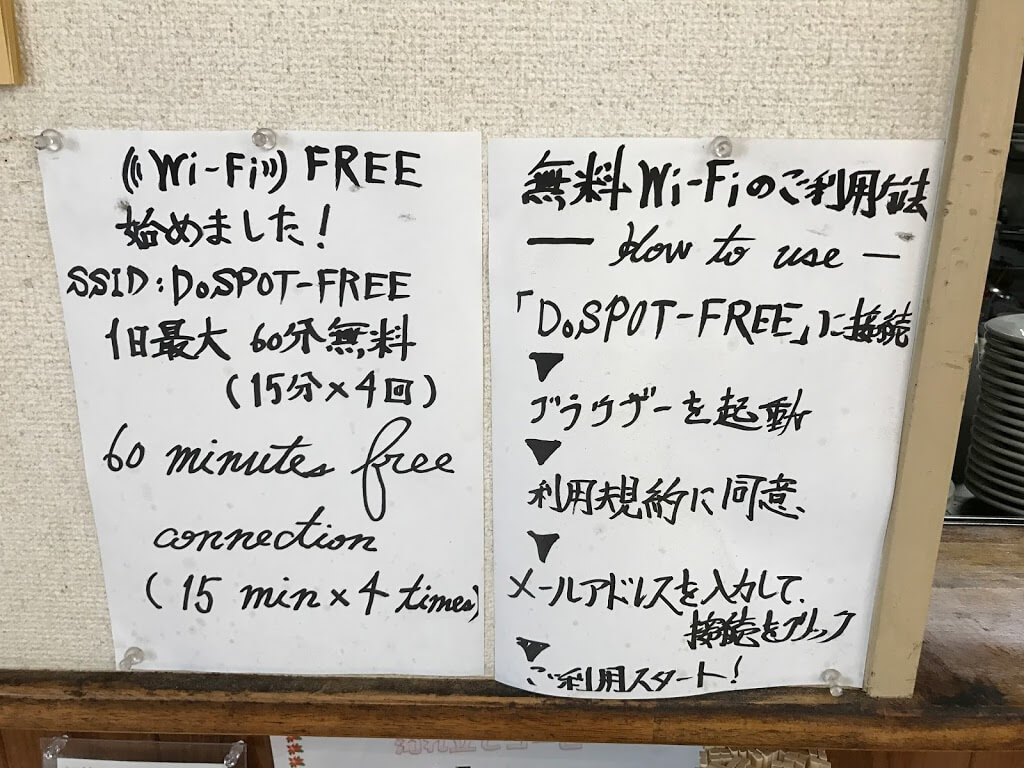 ((Wi-Fi)) FREE
始めました!
SSID:DoSPOT-FREE
1日最大 60分無料
(15分×4回)
60 minutes free
connection
(15 min×4 times)
無料Wi-Fiのご利用方法
— How to use —
「DoSPOT-FREE」に接続
▼
ブラウザーを起動
▼
利用規約に同意、
▼
メールアドレスを入力して、
接続をクリック
▼
ご利用スタート!